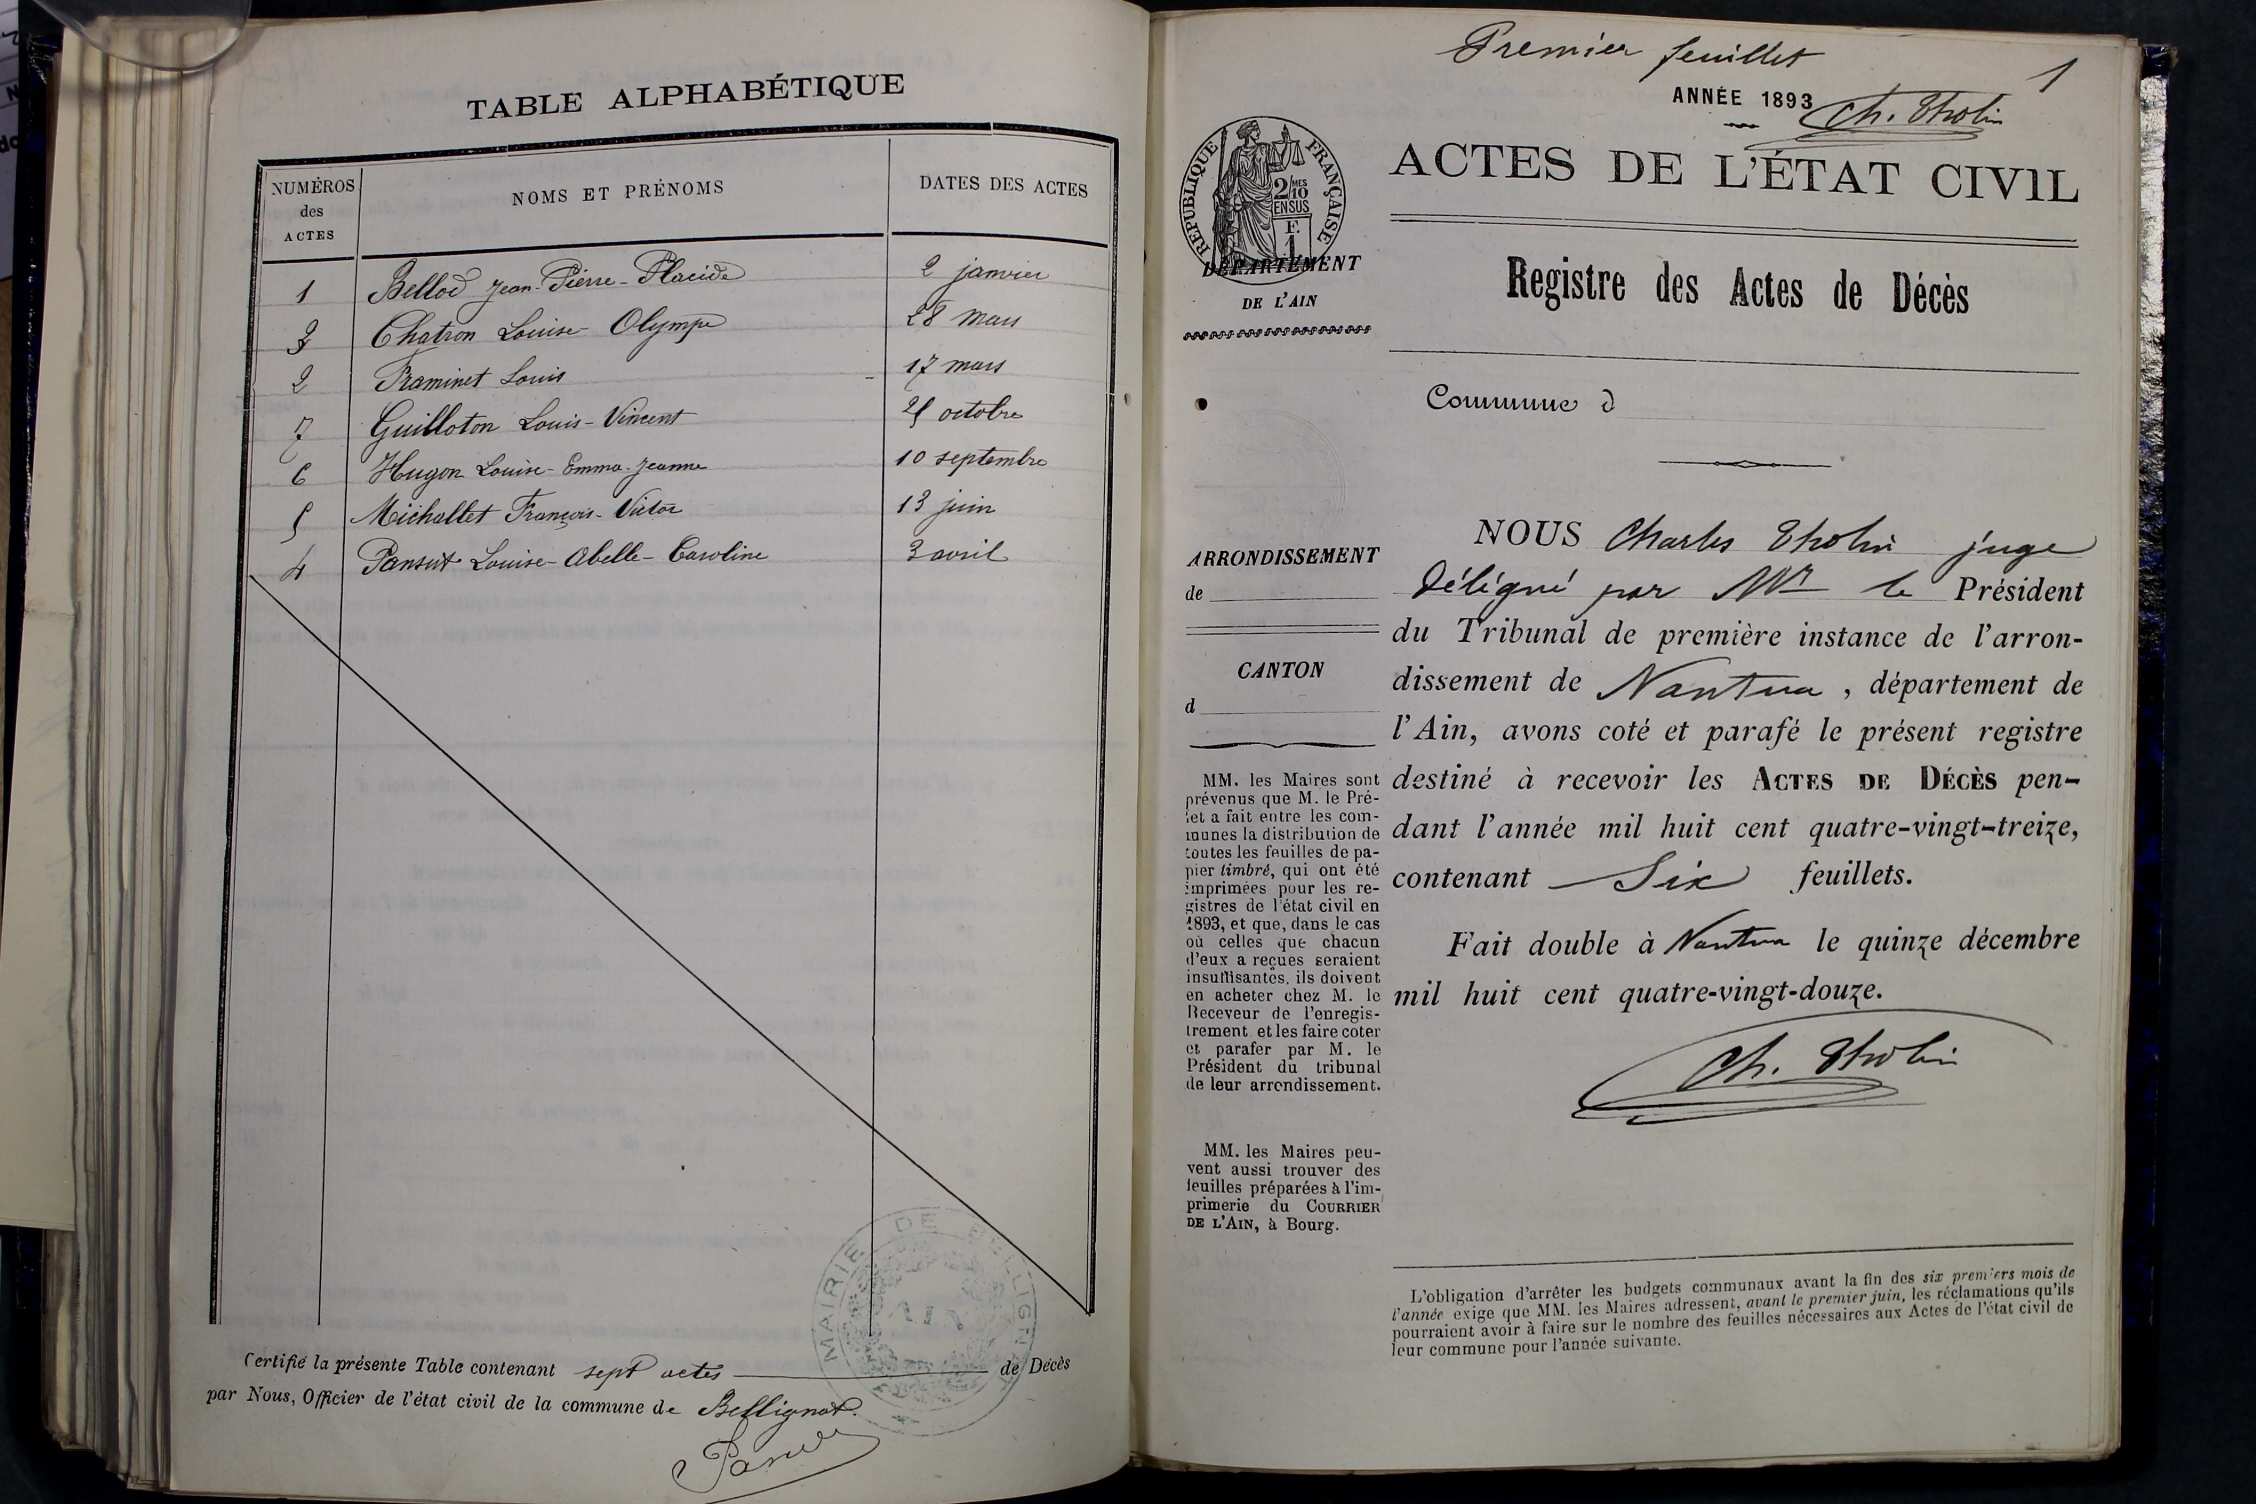 TABLE ALPHABÉTIQUE
NUMÉROS des ACTES NOMS ET PRÉNOMS DATES DES ACTES
1 Bellod Jean-Pierre-Placide 2 janvier
3 Chatron Louise-Olympe 28 mars
2 Framinet Louis 17 mars
7 Guilloton Louis-Vincent 25 octobre
6 Hugon Louise-Emma-Jeanne 10 septembre
5 Michallet François-Victor 13 juin
4 Pansut Louise-Abelle-Caroline 3 avril
Certifié la présente Table contenant sept actes de Décès
par Nous, Officier de l'état civil de la commune de Bellignat.
MAIRIE DE BELLIGNAT
AIN
Premier feuillet
1
ANNÉE 1893
Ch. Tholin
RÉPUBLIQUE FRANÇAISE
2/10 MES
EN SUS
F.
1
ACTES DE L'ÉTAT CIVIL
DÉPARTEMENT
DE L'AIN
Registre des Actes de Décès
Commune d
ARRONDISSEMENT
de
CANTON
d
MM. les Maires sont
prévenus que M. le Pré-
fet a fait entre les com-
munes la distribution de
toutes les feuilles de pa-
pier timbré, qui ont été
imprimées pour les re-
gistres de l'état civil en
1893, et que, dans le cas
où celles que chacun
d'eux a reçues seraient
insuffisantes, ils doivent
en acheter chez M. le
Receveur de l'enregis-
trement et les faire coter
et parafer par M. le
Président du tribunal
de leur arrondissement.
MM. les Maires peu-
vent aussi trouver des
feuilles préparées à l'im-
primerie du COURRIER
DE L'AIN, à Bourg.
NOUS Charles Tholin juge
délégué par Mr le Président
du Tribunal de première instance de l'arron-
dissement de Nantua, département de
l'Ain, avons coté et parafé le présent registre
destiné à recevoir les ACTES DE DÉCÈS pen-
dant l'année mil huit cent quatre-vingt-treize,
contenant Six feuillets.
Fait double à Nantua le quinze décembre
mil huit cent quatre-vingt-douze.
Ch. Tholin
L'obligation d'arrêter les budgets communaux avant la fin des six premiers mois de
l'année exige que MM. les Maires adressent, avant le premier juin, les réclamations qu'ils
pourraient avoir à faire sur le nombre des feuilles nécessaires aux Actes de l'état civil de
leur commune pour l'année suivante.